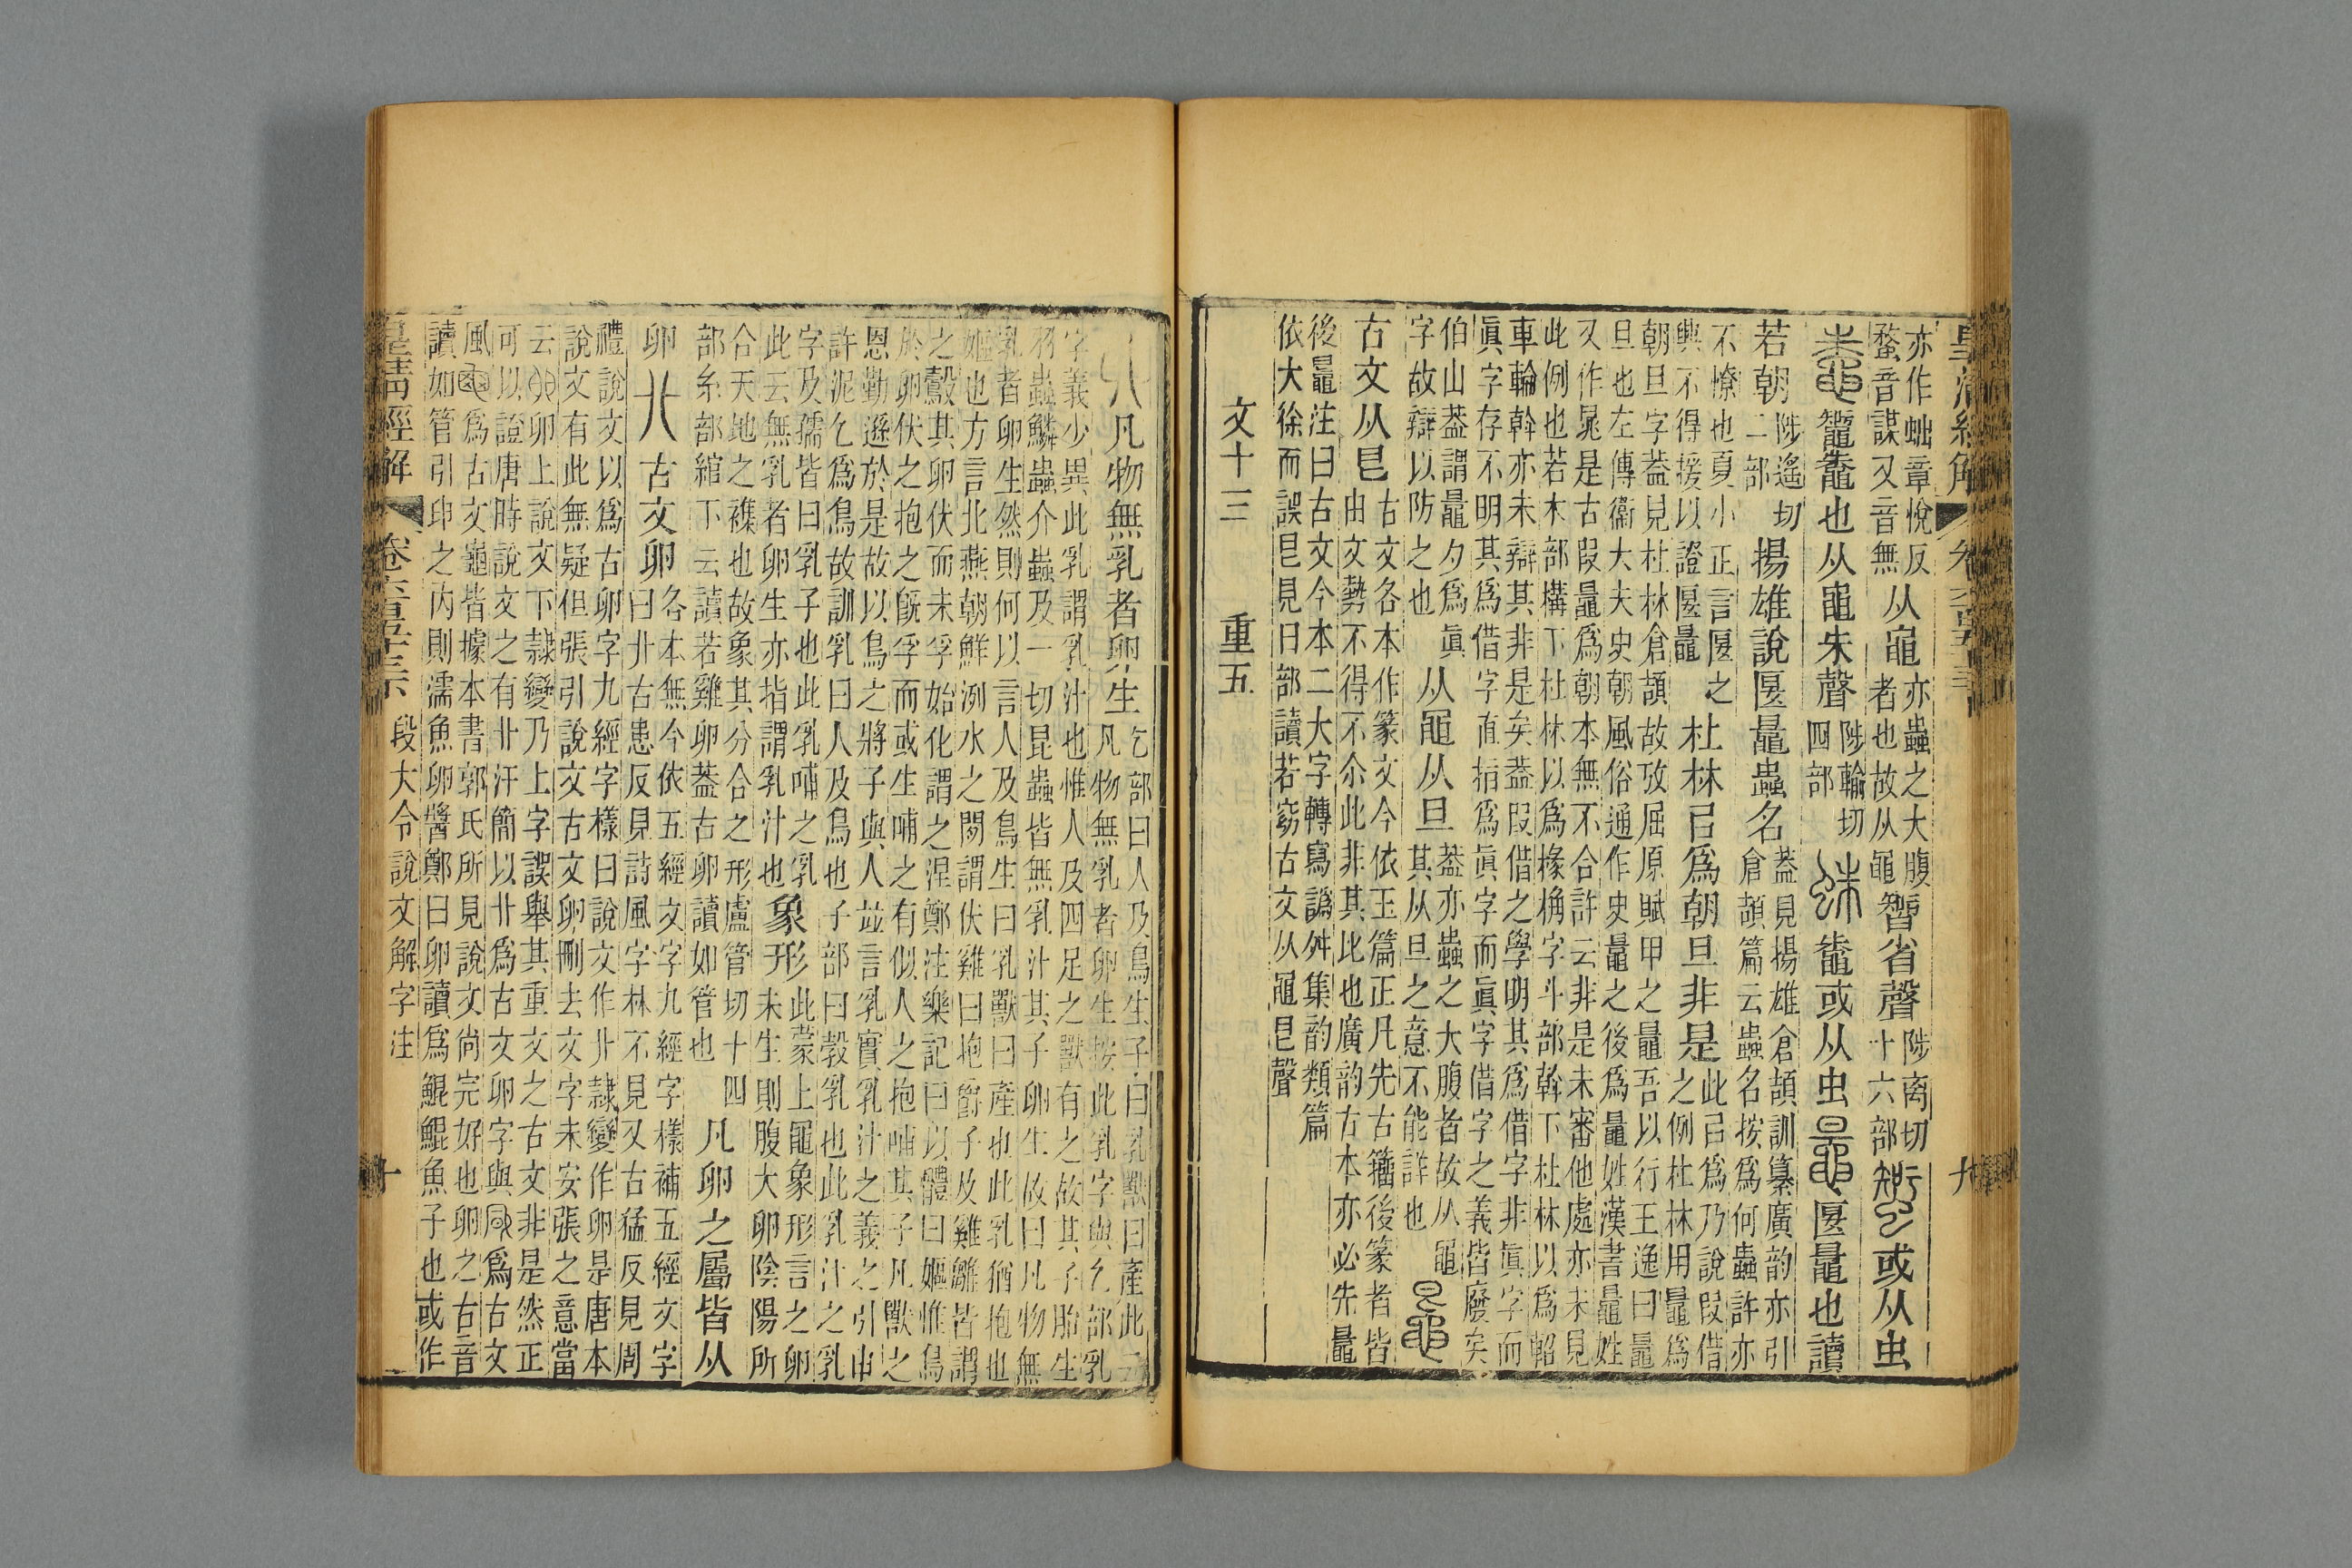 皇清經解
卷六百五十三
九
亦作蚍章悅反
蝥音謀又音無
从黽
亦蟲之大腹
者也故从黽
𥏼省聲
陟离切
十六部
或从虫
鼅鼄也从黽朱聲
陟輸切
四部
鼄或从虫
匽鼂也讀
若朝
陟遙切
二部
揚雄說匽鼂蟲名
蓋見揚雄倉頡訓纂廣韵亦引
倉頡篇云蟲名按爲何蟲許亦
不憭也夏小正言匽之
興不得援以證匽鼂
杜林㠯爲朝旦非是
此㠯爲乃說叚借
之例杜林用鼂爲
朝旦字葢見杜林倉頡故攷屈原賦甲之鼂吾以行王逸曰鼂
旦也左傳衞大夫史朝風俗通作史鼂之後爲鼂姓漢書鼂姓
又作晁是古叚鼂爲朝本無不合許云非是未審他處亦未見
此例也若木部構下杜林以爲椽桷字斗部斡下杜林以爲軺
車輪斡亦未辯其非是矣葢叚借之學明其爲借字非眞字而
眞字存不明其爲借字直指爲眞字而眞字借字之義皆廢矣
伯山葢謂鼂夕爲眞
字故辯以防之也
从黽从旦
葢亦蟲之大腹者故从黽
其从旦之意不能詳也
古文从皀
古文各本作篆文今依玉篇正凡先古籒後篆者皆
由文勢不得不尒此非其比也廣韵古本亦必先鼂
後鼂注曰古文今本二大字轉寫譌舛集韵類篇
依大徐而誤皀見日部讀若窈古文从黽皀聲
文十三　重五
凡物無乳者卵生
乞部曰人及鳥生子曰乳獸曰產此云
凡物無乳者卵生按此乳字與乞部乳
字義少異此乳謂乳汁也惟人及四足之獸有之故其子胎生
羽蟲鱗蟲介蟲及一切昆蟲皆無乳汁其子卵生故曰凡物無
乳者卵生然則何以言人及鳥生曰乳獸曰產也此乳猶抱也
嫗也方言北燕朝鮮洌水之閒謂伏雞曰抱爵子及雞雛皆謂
之鷇其卵伏而未孚始化謂之涅鄭注樂記曰以體曰嫗惟鳥
於卵伏之抱之旣孚而或生哺之有似人之抱哺其子凡獸之
恩勤遜於是故以鳥之將子與人竝言乳實乳汁之義之引申
許泥乞爲鳥故訓乳曰人及鳥也子部曰㝅乳也此乳汁之乳
字及孺皆曰乳子也此乳哺之乳也
此云無乳者卵生亦指謂乳汁也
象形
此蒙上黽象形言之卵
未生則腹大卵陰陽所
合天地之襍也故象其分合之形盧管切十四
部糸部綰下云讀若雞卵葢古卵讀如管也
凡卵之屬皆从
卵
古文卵
各本無今依五經文字九經字樣補五經文字
曰卝古患反見詩風字林不見又古猛反見周
禮說文以爲古卵字九經字樣曰說文作卝隷變作卵是唐本
說文有此無疑但張引說文古文卵刪去文字未安張之意當
云卵上說文下隷變乃上字誤舉其重文之古文非是然正
可以證唐時說文之有卝汗簡以卝爲古文卵字與爲古文
風爲古文龜皆據本書郭氏所見說文尙完好也卵之古音
讀如管引申之內則濡魚卵醬鄭曰卵讀爲鯤鯤魚子也或作
皇清經解
卷六百五十三
段大令說文解字注
十